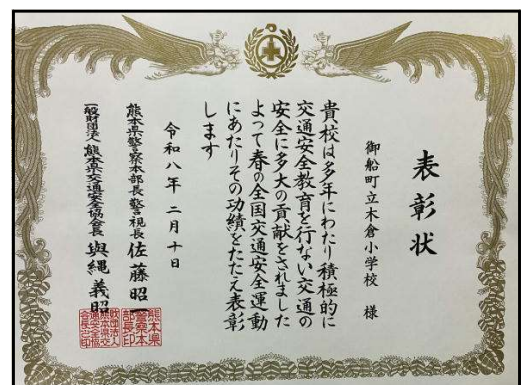 表彰状
御船町立木倉小学校 様
貴校は多年にわたり積極的に
交通安全教育を行ない交通の
安全に多大の貢献をされました
よって春の全国交通安全運動
にあたりその功績をたたえ表彰
します
令和八年 二月十日
熊本県警察本部長 警視長 佐藤昭一
一般財団法人 熊本県交通安全協会会長 與縄義昭